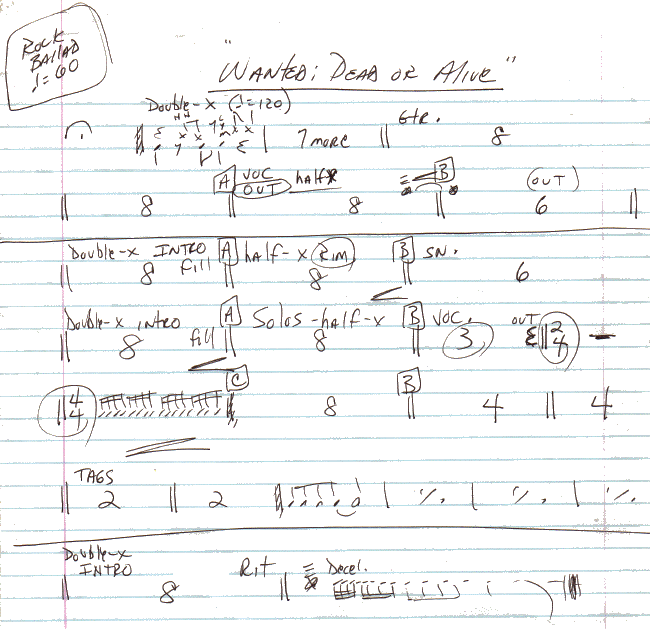 Rock
BALLAD
♩=60
"WANTED: DEAD OR ALIVE"
Double-x (♩=120)
7 more
Gtr.
8
A VOC half-x B (OUT)
OUT
8 8 6
Double-x INTRO A half-x Rim B SN.
8 fill 8 6
Double-x intro A Solos-half-x B VOC. OUT 2
8 fill 8 3 4
4 C B
4 8 4 4
TAGS
2 2 ٪ ٪ ٪
Double-x
INTRO Rit Decel.
8